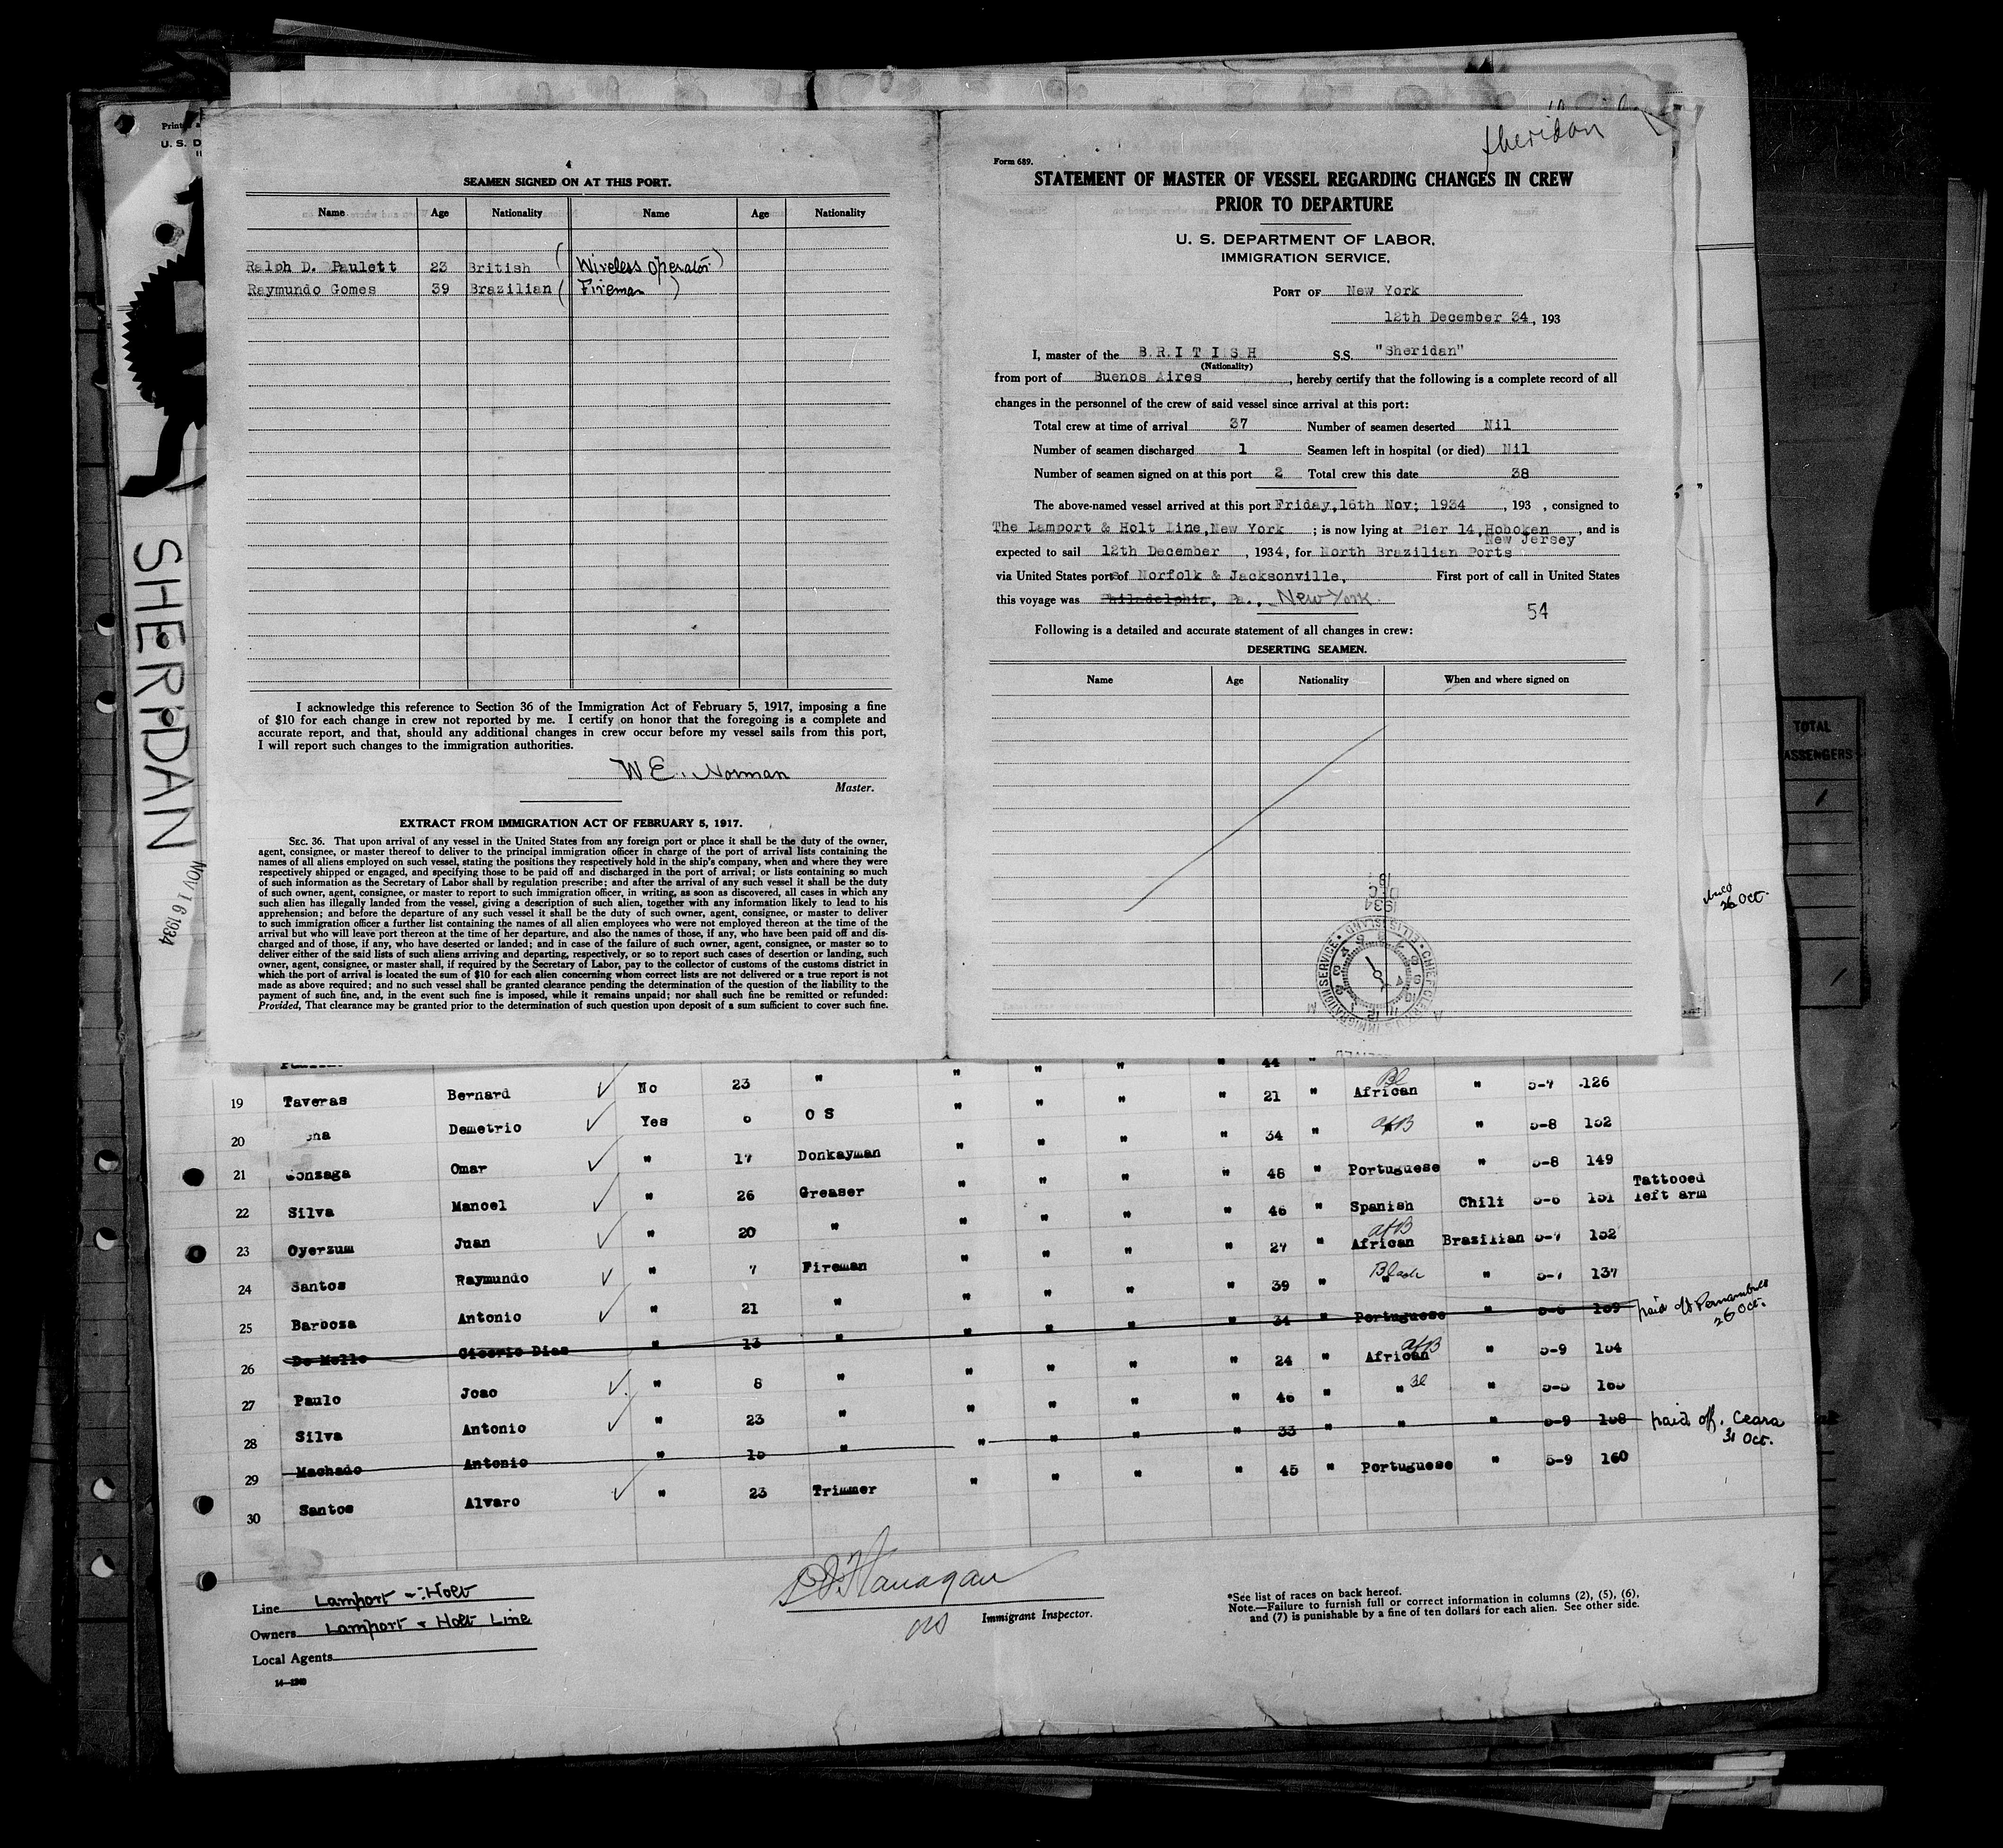 SHERIDAN
NOV 16 1934
4
SEAMEN SIGNED ON AT THIS PORT.
Name Age Nationality Name Age Nationality
Ralph D. Paulett 23 British ( Wireless operator )
Raymundo Gomes 39 Brazilian ( Fireman )
I acknowledge this reference to Section 36 of the Immigration Act of February 5, 1917, imposing a fine
of $10 for each change in crew not reported by me. I certify on honor that the foregoing is a complete and
accurate report, and that, should any additional changes in crew occur before my vessel sails from this port,
I will report such changes to the immigration authorities.
W E. Norman
Master.
EXTRACT FROM IMMIGRATION ACT OF FEBRUARY 5, 1917.
SEC. 36. That upon arrival of any vessel in the United States from any foreign port or place it shall be the duty of the owner,
agent, consignee, or master thereof to deliver to the principal immigration officer in charge of the port of arrival lists containing the
names of all aliens employed on such vessel, stating the positions they respectively hold in the ship's company, when and where they were
respectively shipped or engaged, and specifying those to be paid off and discharged in the port of arrival; or lists containing so much
of such information as the Secretary of Labor shall by regulation prescribe; and after the arrival of any such vessel it shall be the duty
of such owner, agent, consignee, or master to report to such immigration officer, in writing, as soon as discovered, all cases in which any
such alien has illegally landed from the vessel, giving a description of such alien, together with any information likely to lead to his
apprehension; and before the departure of any such vessel it shall be the duty of such owner, agent, consignee, or master to deliver
to such immigration officer a further list containing the names of all alien employees who were not employed thereon at the time of the
arrival but who will leave port thereon at the time of her departure, and also the names of those, if any, who have been paid off and dis-
charged and of those, if any, who have deserted or landed; and in case of the failure of such owner, agent, consignee, or master so to
deliver either of the said lists of such aliens arriving and departing, respectively, or so to report such cases of desertion or landing, such
owner, agent, consignee, or master shall, if required by the Secretary of Labor, pay to the collector of customs of the customs district in
which the port of arrival is located the sum of $10 for each alien concerning whom correct lists are not delivered or a true report is not
made as above required; and no such vessel shall be granted clearance pending the determination of the question of the liability to the
payment of such fine, and, in the event such fine is imposed, while it remains unpaid; nor shall such fine be remitted or refunded:
Provided, That clearance may be granted prior to the determination of such question upon deposit of a sum sufficient to cover such fine.
Sheridan
Form 689.
STATEMENT OF MASTER OF VESSEL REGARDING CHANGES IN CREW
PRIOR TO DEPARTURE
U. S. DEPARTMENT OF LABOR,
IMMIGRATION SERVICE,
PORT OF New York
12th December 34, 193
I, master of the B R I T I S H S.S. "Sheridan"
(Nationality)
from port of Buenos Aires, hereby certify that the following is a complete record of all
changes in the personnel of the crew of said vessel since arrival at this port:
Total crew at time of arrival 37 Number of seamen deserted Nil
Number of seamen discharged 1 Seamen left in hospital (or died) Nil
Number of seamen signed on at this port 2 Total crew this date 38
The above-named vessel arrived at this port Friday, 16th Nov; 1934, 193 , consigned to
The Lamport & Holt Line, New York ; is now lying at Pier 14, Hoboken, and is
New Jersey
expected to sail 12th December, 1934, for North Brazilian Ports
via United States ports of Norfolk & Jacksonville, First port of call in United States
this voyage was Philadelphia, Pa., New York
54
Following is a detailed and accurate statement of all changes in crew:
DESERTING SEAMEN.
Name Age Nationality When and where signed on
1934
DEC
CHIEF CLERK U.S. IMMIGRATION SERVICE ELLIS ISLAND
TOTAL
PASSENGERS
26 Oct.
44
19 Taveras Bernard No 23 " " " " " 21 " African Bl " 5-7 126
20 Demetrio Yes O S " " " " 34 " AfB " 5-8 152
21 Gonzaga Omar " 17 Donkayman " " " " 48 " Portuguese " 5-8 149
22 Silva Manoel " 26 Greaser " " " " 46 " Spanish Chili 5-6 151 Tattooed left arm
23 Oyerzum Juan " 20 " " " " " 27 " African AfB Brazilian 5-7 152
24 Santos Raymundo " 7 Fireman " " " " 39 " " Black " 5-7 137
25 Barbosa Antonio " 21 " " " " " 34 " Portuguese " 5-6 159 paid off Pernambuco 26 Oct.
26 De Mello Ciceric Dias " 13 " " " " " 24 " African AfB " 5-9 154
27 Paulo Joao " 8 " " " " " 46 " " Bl "
28 Silva Antonio " 23 " " " " " 33 " " " 5-9 158 paid off. Ceara 31 Oct.
29 Machado Antonio " " " " " " 45 " Portuguese " 5-9 160
30 Santos Alvaro " 23 Trimmer "
Line Lamport & Holt
Owners Lamport & Holt Line
Local Agents
Flanagan
Immigrant Inspector.
*See list of races on back hereof.
Note.—Failure to furnish full or correct information in columns (2), (5), (6),
and (7) is punishable by a fine of ten dollars for each alien. See other side.